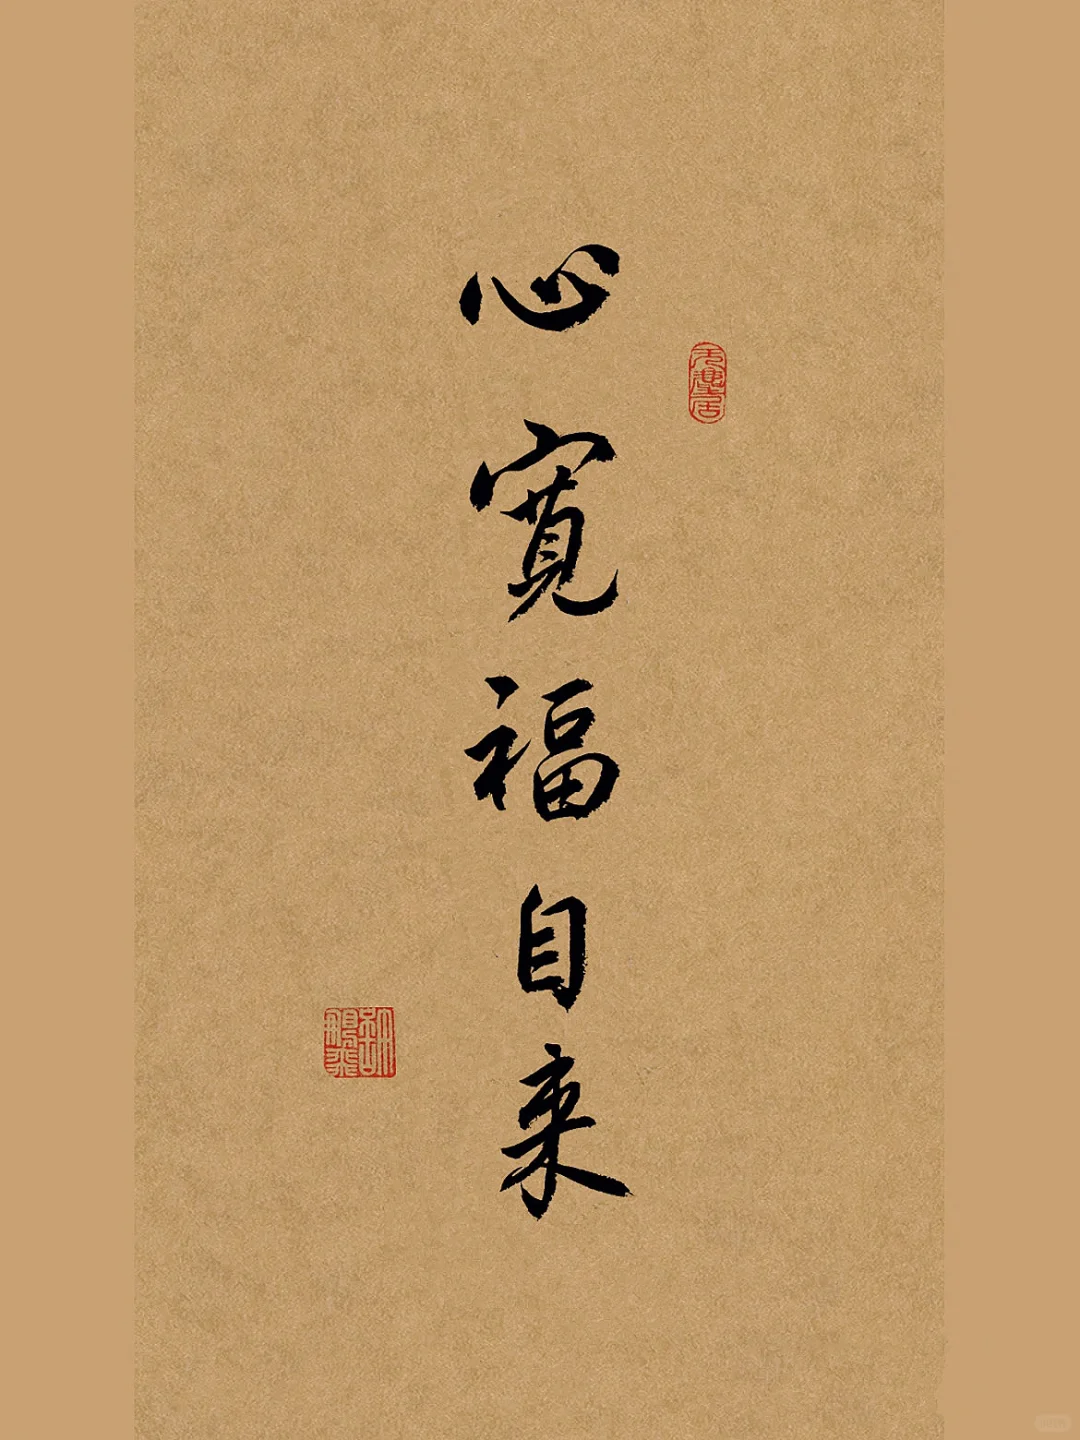 心寛福自来